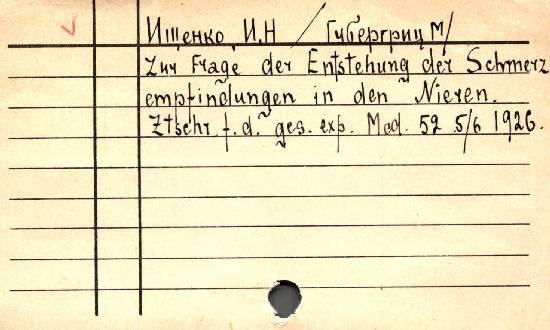 Ищенко, И.Н / Губергриц М/
Zur Frage der Entstehung der Schmerz
empfindungen in den Nieren.
Ztschr f. d. ges. exp. Med. 52 5/6 1926.